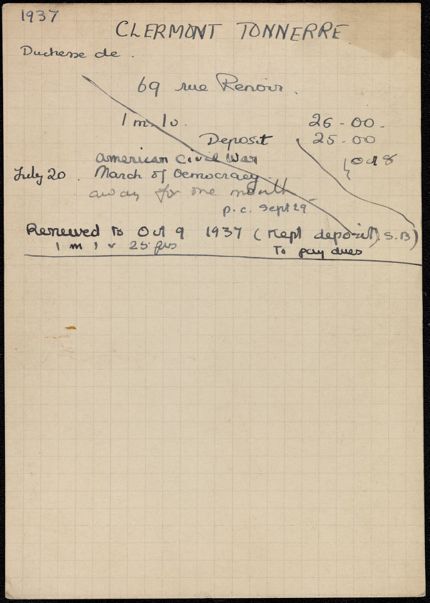 1937
CLERMONT TONNERRE
Duchesse de.
69 rue Renoir.
1 m. 1v. 26-00.
Deposit 25-00
American Civil War
July 20. March of Democracy
away for one month
p.c. Sept 29
Renewed to Oct 9 1937 (Kept deposit) S.B)
1 m 1 v 25 frs To pay dues